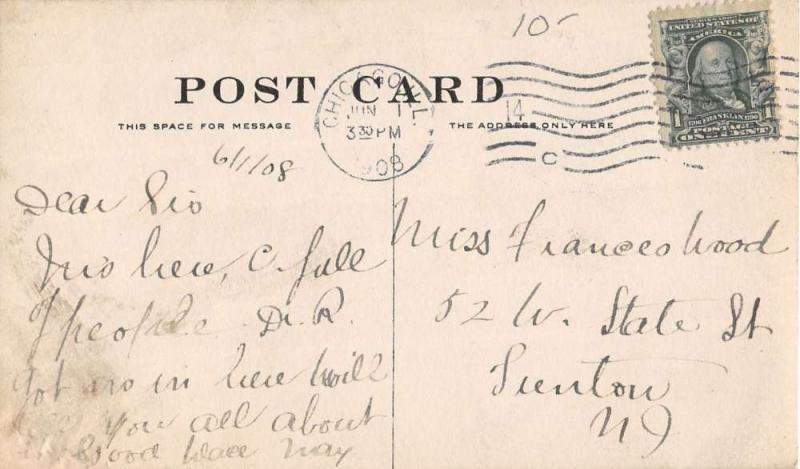 10-
POST CARD
THIS SPACE FOR MESSAGE
THE ADDRESS ONLY HERE
CHICAGO, ILL.
JUN 1
3 30 PM
1908
14
C
SERIES 1902
UNITED STATES OF
AMERICA
1 FRANKLIN 1
POSTAGE
ONE CENT
6/1/08
Dear Sis
here, full
people Dr. R.
Got us in here Will
you all about
Good place May
Miss Frances Wood
52 W. State St
Trenton
NJ